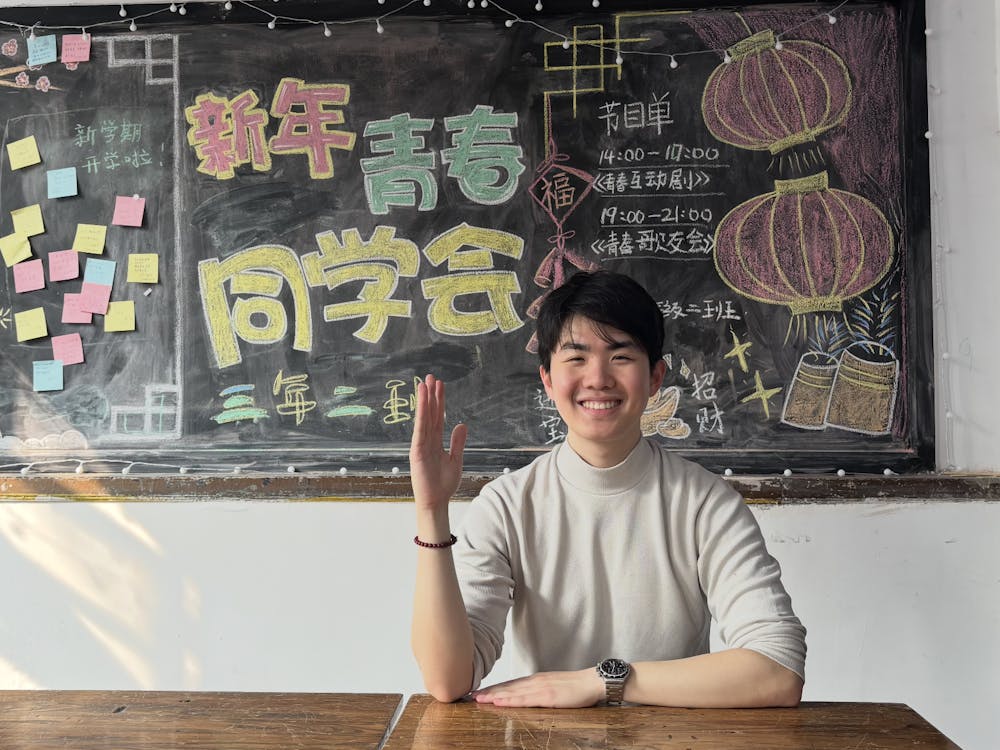 新学期
开学啦！
新年
青春
同学会
三年二班
福
节目单
14:00-17:00
《青春互动剧》
19:00-21:00
《青春歌友会》
级二班
招财